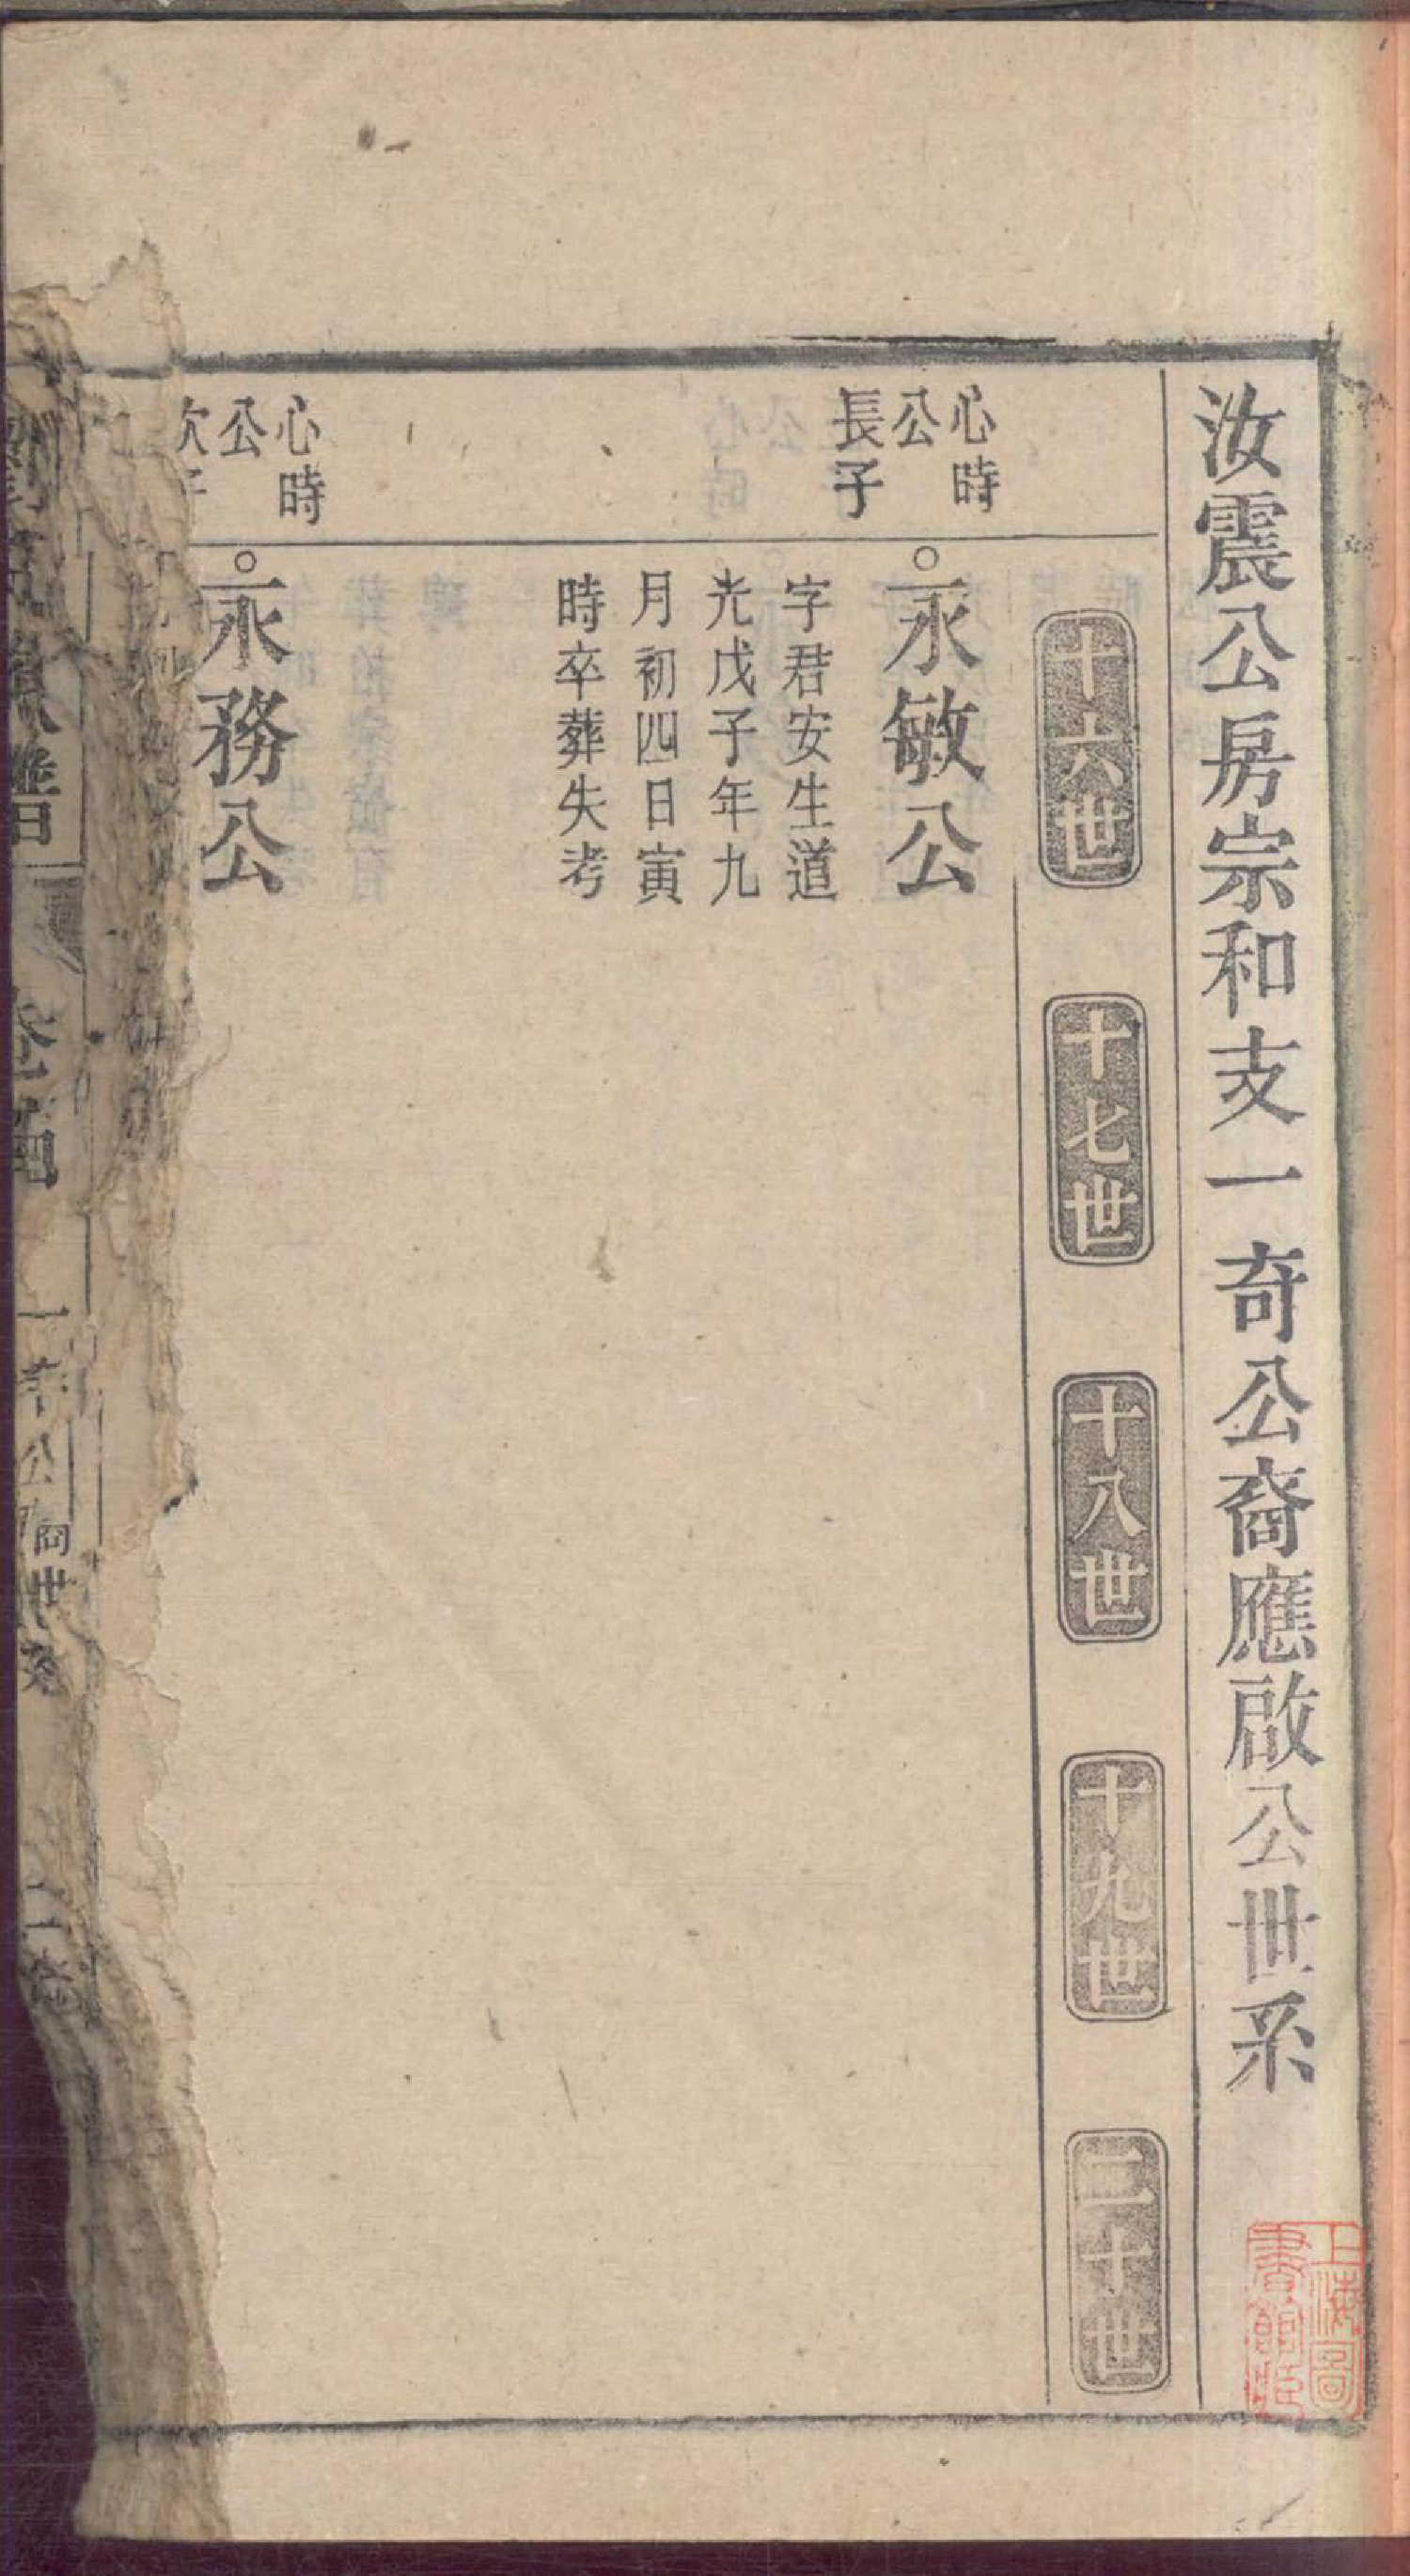 汝震公房宗和支一奇公裔應啟公世系
十六世
十七世
十八世
十九世
二十世
心時
公
長子
永敏公
字君安生道
光戊子年九
月初四日寅
時卒葬失考
心時
公
次子
永務公
上海圖
書館藏